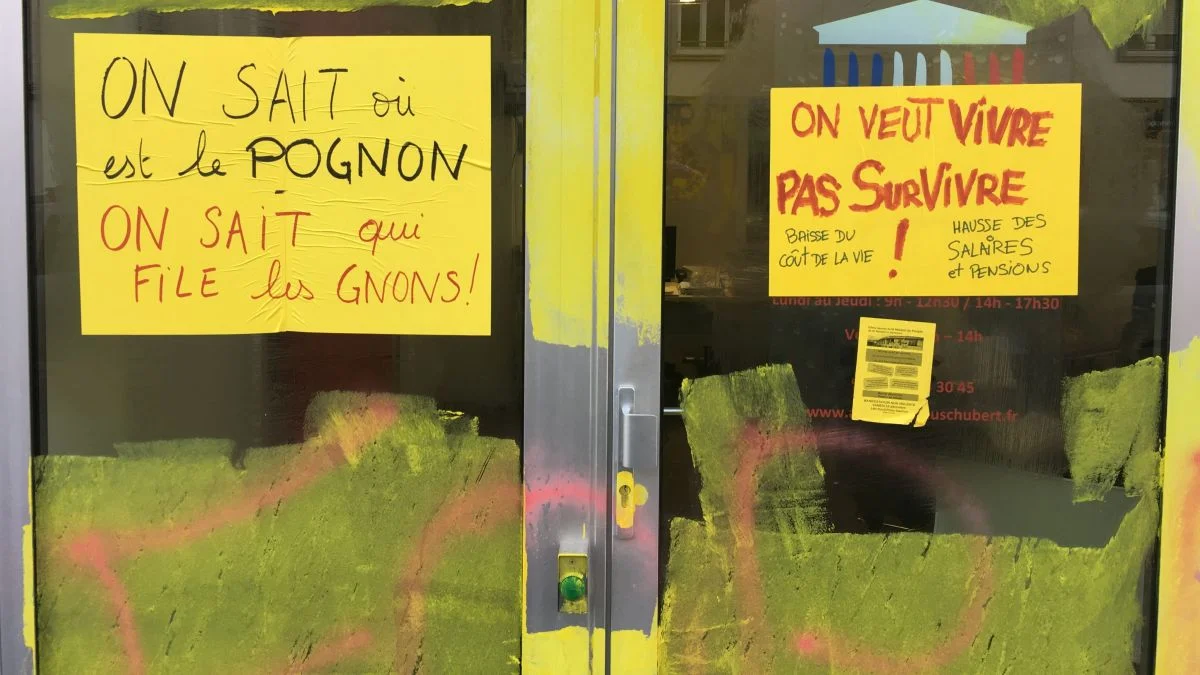 ON SAIT où
est le POGNON
ON SAIT qui
FILE les GNONS!
ON VEUT VIVRE
PAS SURVIVRE
!
BAISSE DU
COÛT DE LA VIE
HAUSSE DES
SALAIRES
et PENSIONS
Lundi au Jeudi : 9h - 12h30 / 14h - 17h30
– 14h
30 45
www.a uschubert.fr